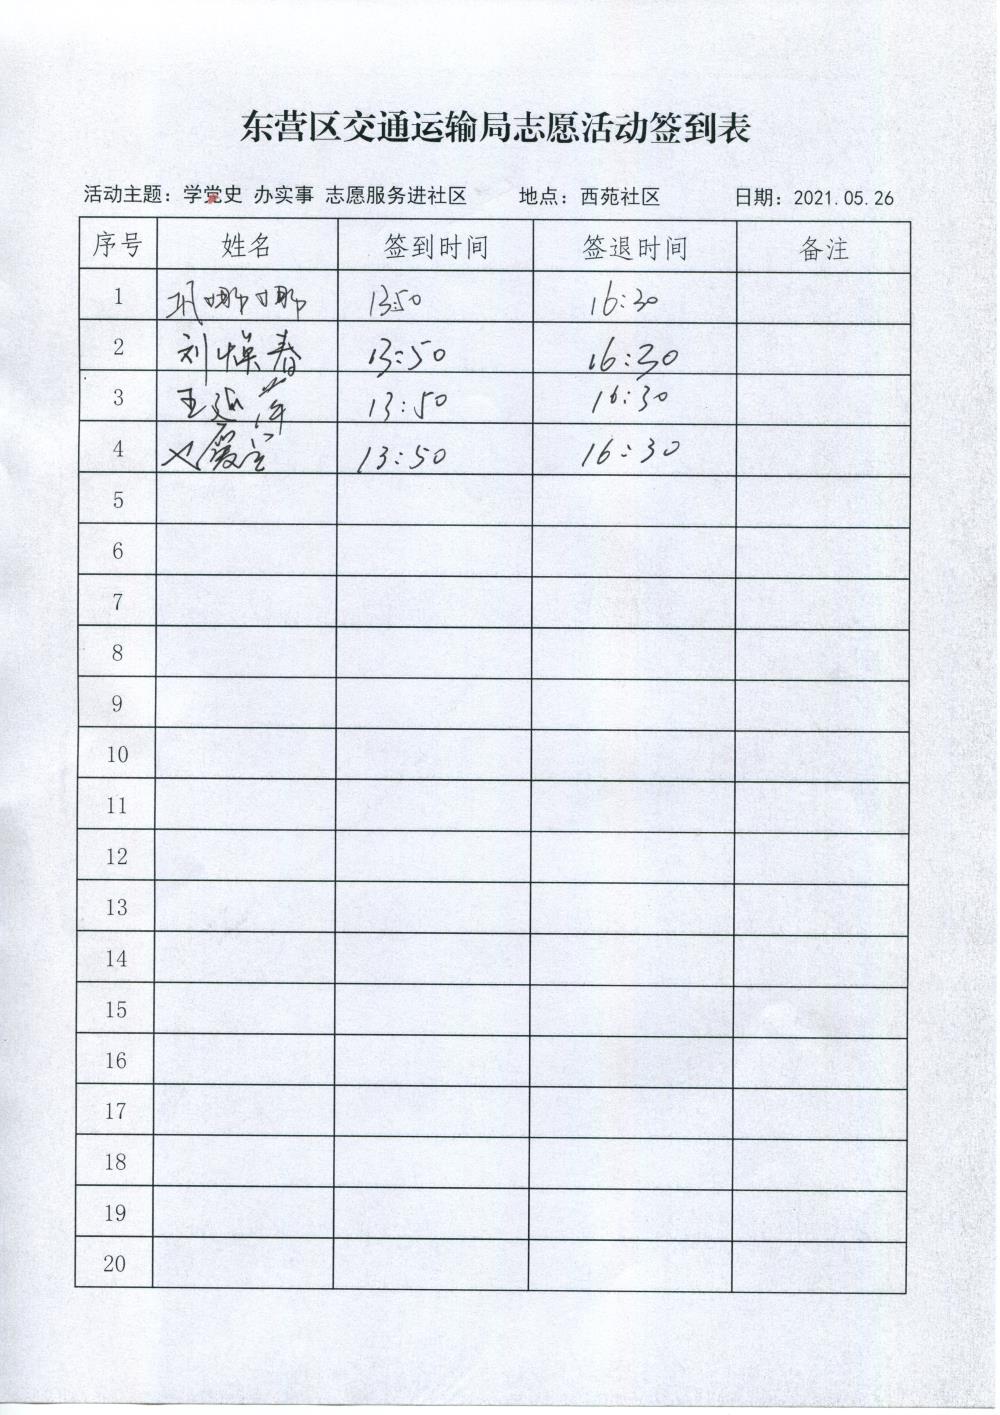 东营区交通运输局志愿活动签到表
活动主题：学党史 办实事 志愿服务进社区 地点：西苑社区 日期：2021.05.26
序号 姓名 签到时间 签退时间 备注
1 巩娜娜 13:50 16:30
2 刘焕春 13:50 16:30
3 王延萍 13:50 16:30
4 13:50 16:30
5
6
7
8
9
10
11
12
13
14
15
16
17
18
19
20